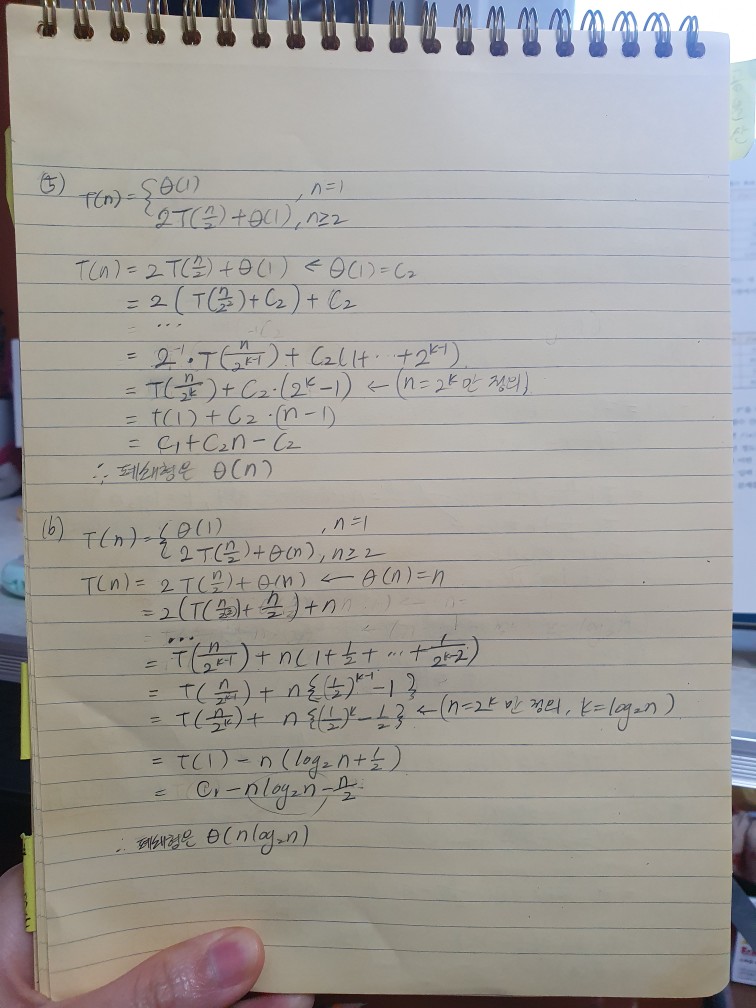 (5) T(n) = { θ(1) , n=1
2T(n/2) + θ(1), n≥2
T(n) = 2T(n/2) + θ(1) ← θ(1) = C₂
= 2(T(n/2²) + C₂) + C₂
= ...
= 2⁻¹ · T(n/2^(k-1)) + C₂(1+ ... + 2^(k-1))
= T(n/2^k) + C₂·(2^k - 1) ← (n=2^k 만 정의)
= t(1) + C₂·(n-1)
= C₁+C₂n - C₂
∴ 폐쇄형은 θ(n)
(6) T(n) = { θ(1) , n=1
2T(n/2) + θ(n), n≥2
T(n) = 2T(n/2) + θ(n) ← θ(n) = n
= 2(T(n/2²) + n/2) + n
...
= T(n/2^(k-1)) + n(1 + 1/2 + ... + 1/2^(k-2))
= T(n/2^(k-1)) + n{(1/2)^(k-1) - 1}
= T(n/2^k) + n{(1/2)^k - 1/2} ← (n=2^k 만 정의, k=log₂n)
= T(1) - n(log₂n + 1/2)
= C₁ - nlog₂n - n/2
∴ 폐쇄형은 θ(nlog₂n)